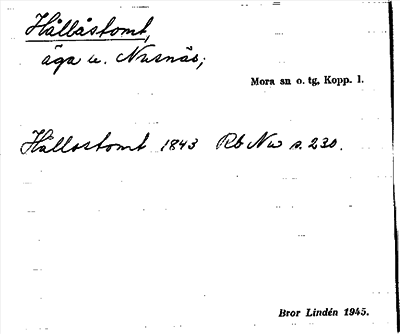 Hållåstomt,
äga u. Nusnäs;
Mora sn o. tg, Kopp. l.
Hållostomt 1843 Rb Nw s. 230.
Bror Lindén 1945.